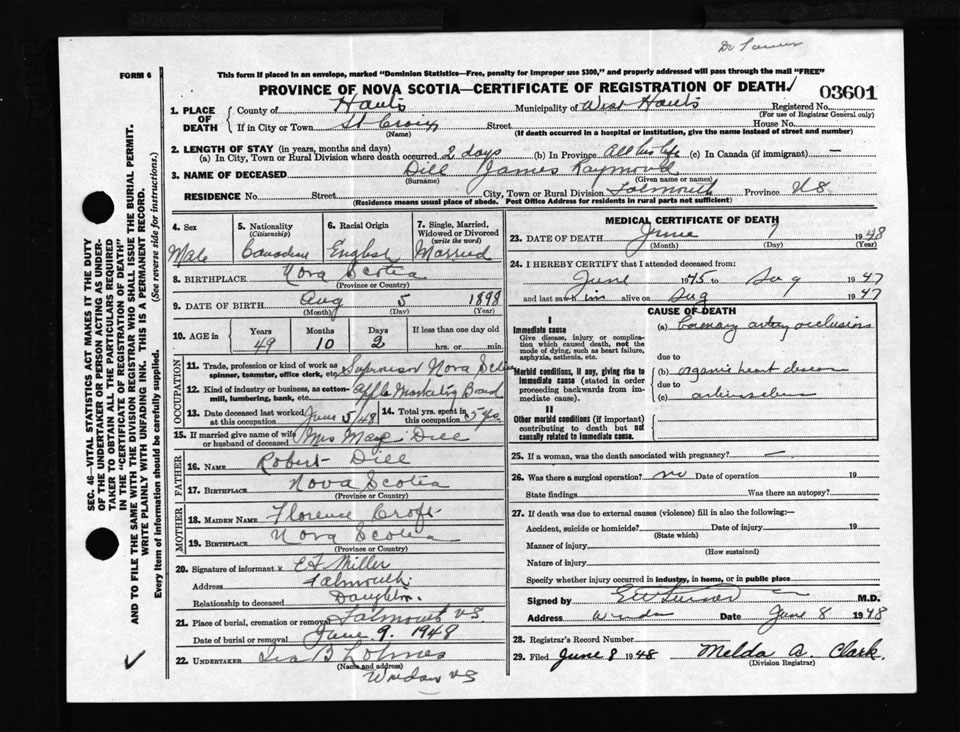 FORM 6
This form if placed in an envelope, marked "Dominion Statistics—Free, penalty for improper use $300," and properly addressed will pass through the mail "FREE"
PROVINCE OF NOVA SCOTIA—CERTIFICATE OF REGISTRATION OF DEATH
03601
1. PLACE OF DEATH County of Hants Municipality of West Hants Registered No.
(For use of Registrar General only)
If in City or Town St Croix Street House No.
(Name) (If death occurred in a hospital or institution, give the name instead of street and number)
2. LENGTH OF STAY (in years, months and days)
(a) In City, Town or Rural Division where death occurred 2 days (b) In Province All his life (c) In Canada (if immigrant) —
3. NAME OF DECEASED Dill James Raymond
(Surname) (Given name or names)
RESIDENCE No. Street City, Town or Rural Division Falmouth Province N S.
(Residence means usual place of abode. Post Office Address for residents in rural parts not sufficient)
4. Sex Male
5. Nationality (Citizenship) Canadian
6. Racial Origin English
7. Single, Married, Widowed or Divorced (write the word) Married
8. BIRTHPLACE Nova Scotia
(Province or Country)
9. DATE OF BIRTH Aug 5 1898
(Month) (Day) (Year)
10. AGE in Years 49 Months 10 Days 2 If less than one day old hrs. or min.
OCCUPATION
11. Trade, profession or kind of work as spinner, teamster, office clerk, etc. Supervisor Nova Scotia
12. Kind of industry or business, as cotton-mill, lumbering, bank, etc. Apple Marketing Board
13. Date deceased last worked at this occupation June 5/48 14. Total yrs. spent in this occupation 5 yrs
15. If married give name of wife or husband of deceased Mrs Dill
FATHER
16. NAME Robert Dill
17. BIRTHPLACE Nova Scotia
(Province or Country)
MOTHER
18. MAIDEN NAME Florence Croft
19. BIRTHPLACE Nova Scotia
(Province or Country)
20. Signature of informant x E F Miller
Address Falmouth
Relationship to deceased Daughter.
21. Place of burial, cremation or removal Falmouth NS
Date of burial or removal June 9. 1948
22. UNDERTAKER Ira B Lohnes
(Name and address)
Windsor NS
MEDICAL CERTIFICATE OF DEATH
23. DATE OF DEATH June 7 1948
(Month) (Day) (Year)
24. I HEREBY CERTIFY that I attended deceased from:
June 1945 to Aug 1947
and last saw him alive on Aug 1947
CAUSE OF DEATH
I
Immediate cause
Give disease, injury or complication which caused death, not the mode of dying, such as heart failure, asphyxia, asthenia, etc.
(a) Coronary artery occlusion
due to
Morbid conditions, if any, giving rise to immediate cause (stated in order proceeding backwards from immediate cause).
(b) organic heart disease
due to
(c)
II
Other morbid conditions (if important) contributing to death but not causally related to immediate cause.
25. If a woman, was the death associated with pregnancy? —
26. Was there a surgical operation? no Date of operation 19
State findings Was there an autopsy?
27. If death was due to external causes (violence) fill in also the following:—
Accident, suicide or homicide? Date of injury 19
(State which)
Manner of injury
(How sustained)
Nature of injury
Specify whether injury occurred in industry, in home, or in public place
Signed by M.D.
Address Windsor Date June 8 1948
28. Registrar's Record Number
29. Filed June 8 1948 Melda A. Clark.
(Division Registrar)
SEC. 46—VITAL STATISTICS ACT MAKES IT THE DUTY
OF THE UNDERTAKER OR PERSON ACTING AS UNDER-
TAKER TO OBTAIN ALL THE PARTICULARS REQUIRED
IN THE "CERTIFICATE OF REGISTRATION OF DEATH"
AND TO FILE THE SAME WITH THE DIVISION REGISTRAR WHO SHALL ISSUE THE BURIAL PERMIT.
WRITE PLAINLY WITH UNFADING INK. THIS IS A PERMANENT RECORD.
Every item of information should be carefully supplied. (See reverse side for instructions.)